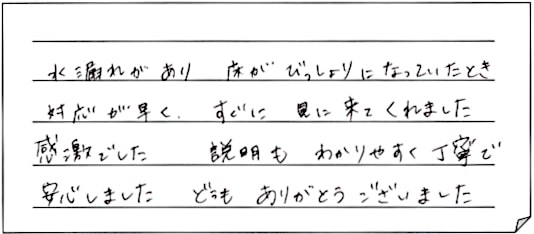 水漏れがあり 床がびっしょりになっていたとき
対応が早く、すぐに見に来てくれました
感激でした 説明もわかりやすく丁寧で
安心しました どうもありがとうございました